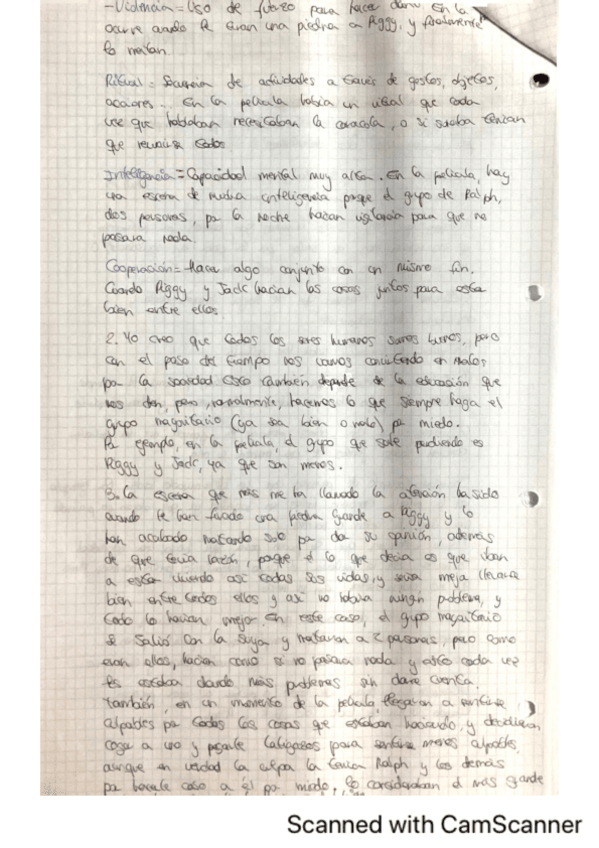 -Violencia = Uso de fuerza para hacer daño. En la
ocurre cuando le tiran una piedra a Piggy, y finalmente
lo matan.
Ritual = Secuencia de actividades a través de gestos, objetos,
acciones... En la película había un ritual que cada
vez que hablaban necesitaban la caracola, o si sonaba tenían
que reunirse todos
Inteligencia = Capacidad mental muy alta. En la película, hay
una escena de mucha inteligencia porque el grupo de Ralph,
dos personas, por la noche hacían vigilancia para que no
pasara nada.
Cooperación = Hacer algo conjunto con un mismo fin.
Cuando Piggy y Jack hacían las cosas juntos para estar
bien entre ellos
2. Yo creo que todos los seres humanos somos buenos, pero
con el paso del tiempo nos vamos convirtiendo en malos
por la sociedad esto también depende de la educación que
nos den, pero, normalmente, hacemos lo que siempre haga el
grupo mayoritario (ya sea bien o malo) por miedo.
Por ejemplo, en la película, el grupo que sale perdiendo es
Piggy y Jack, ya que son menos.
3. La escena que más me ha llamado la atención ha sido
cuando le han tirado una piedra grande a Piggy y lo
han acabado matando solo por dar su opinión, además
de que tenía razón, porque él lo que decía es que iban
a estar viviendo así todas sus vidas, y sería mejor llevarse
bien entre todos ellos y así no habría ningún problema, y
todo lo harían mejor. En este caso, el grupo mayoritario
se salió con la suya y mataron a 2 personas, pero como
eran ellos, hacían como si no pasara nada y esto cada vez
les estaba dando más problemas sin darse cuenta.
También, en un momento de la película llegaron a sentirse
culpables por todas las cosas que estaban haciendo, y decidieron
coger a uno y pegarle latigazos para sentirse menos culpables,
aunque en verdad la culpa la tenía Ralph y los demás
por hacerle caso a él por miedo, lo consideraban el más grande
Scanned with CamScanner